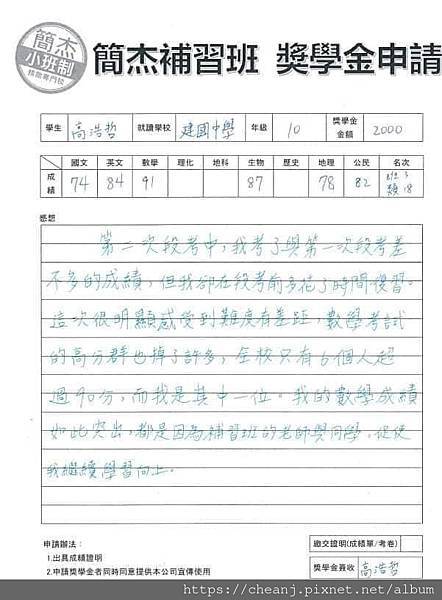 簡杰
小班制
簡杰補習班 獎學金申請
學生 高浩哲 就讀學校 建國中學 年級 10 獎學金金額 2000
國文 英文 數學 理化 地科 生物 歷史 地理 公民 名次
成績 74 84 91 87 78 82 班3 類18
感想
第二次段考中,我考了與第一次段考差
不多的成績,但我卻在段考前多花了時間復習。
這次很明顯感受到難度有差距,數學考試
的高分群也掉了許多,全校只有6個人超
過90分,而我是其中一位。我的數學成績
如此突出,都是因為補習班的老師與同學,促使
我繼續學習向上。
申請辦法:
1.出具成績證明
2.申請獎學金者同時同意提供本公司宣傳使用
繳交證明(成績單/考卷)
獎學金簽收 高浩哲
https://cheanj.pixnet.net/album